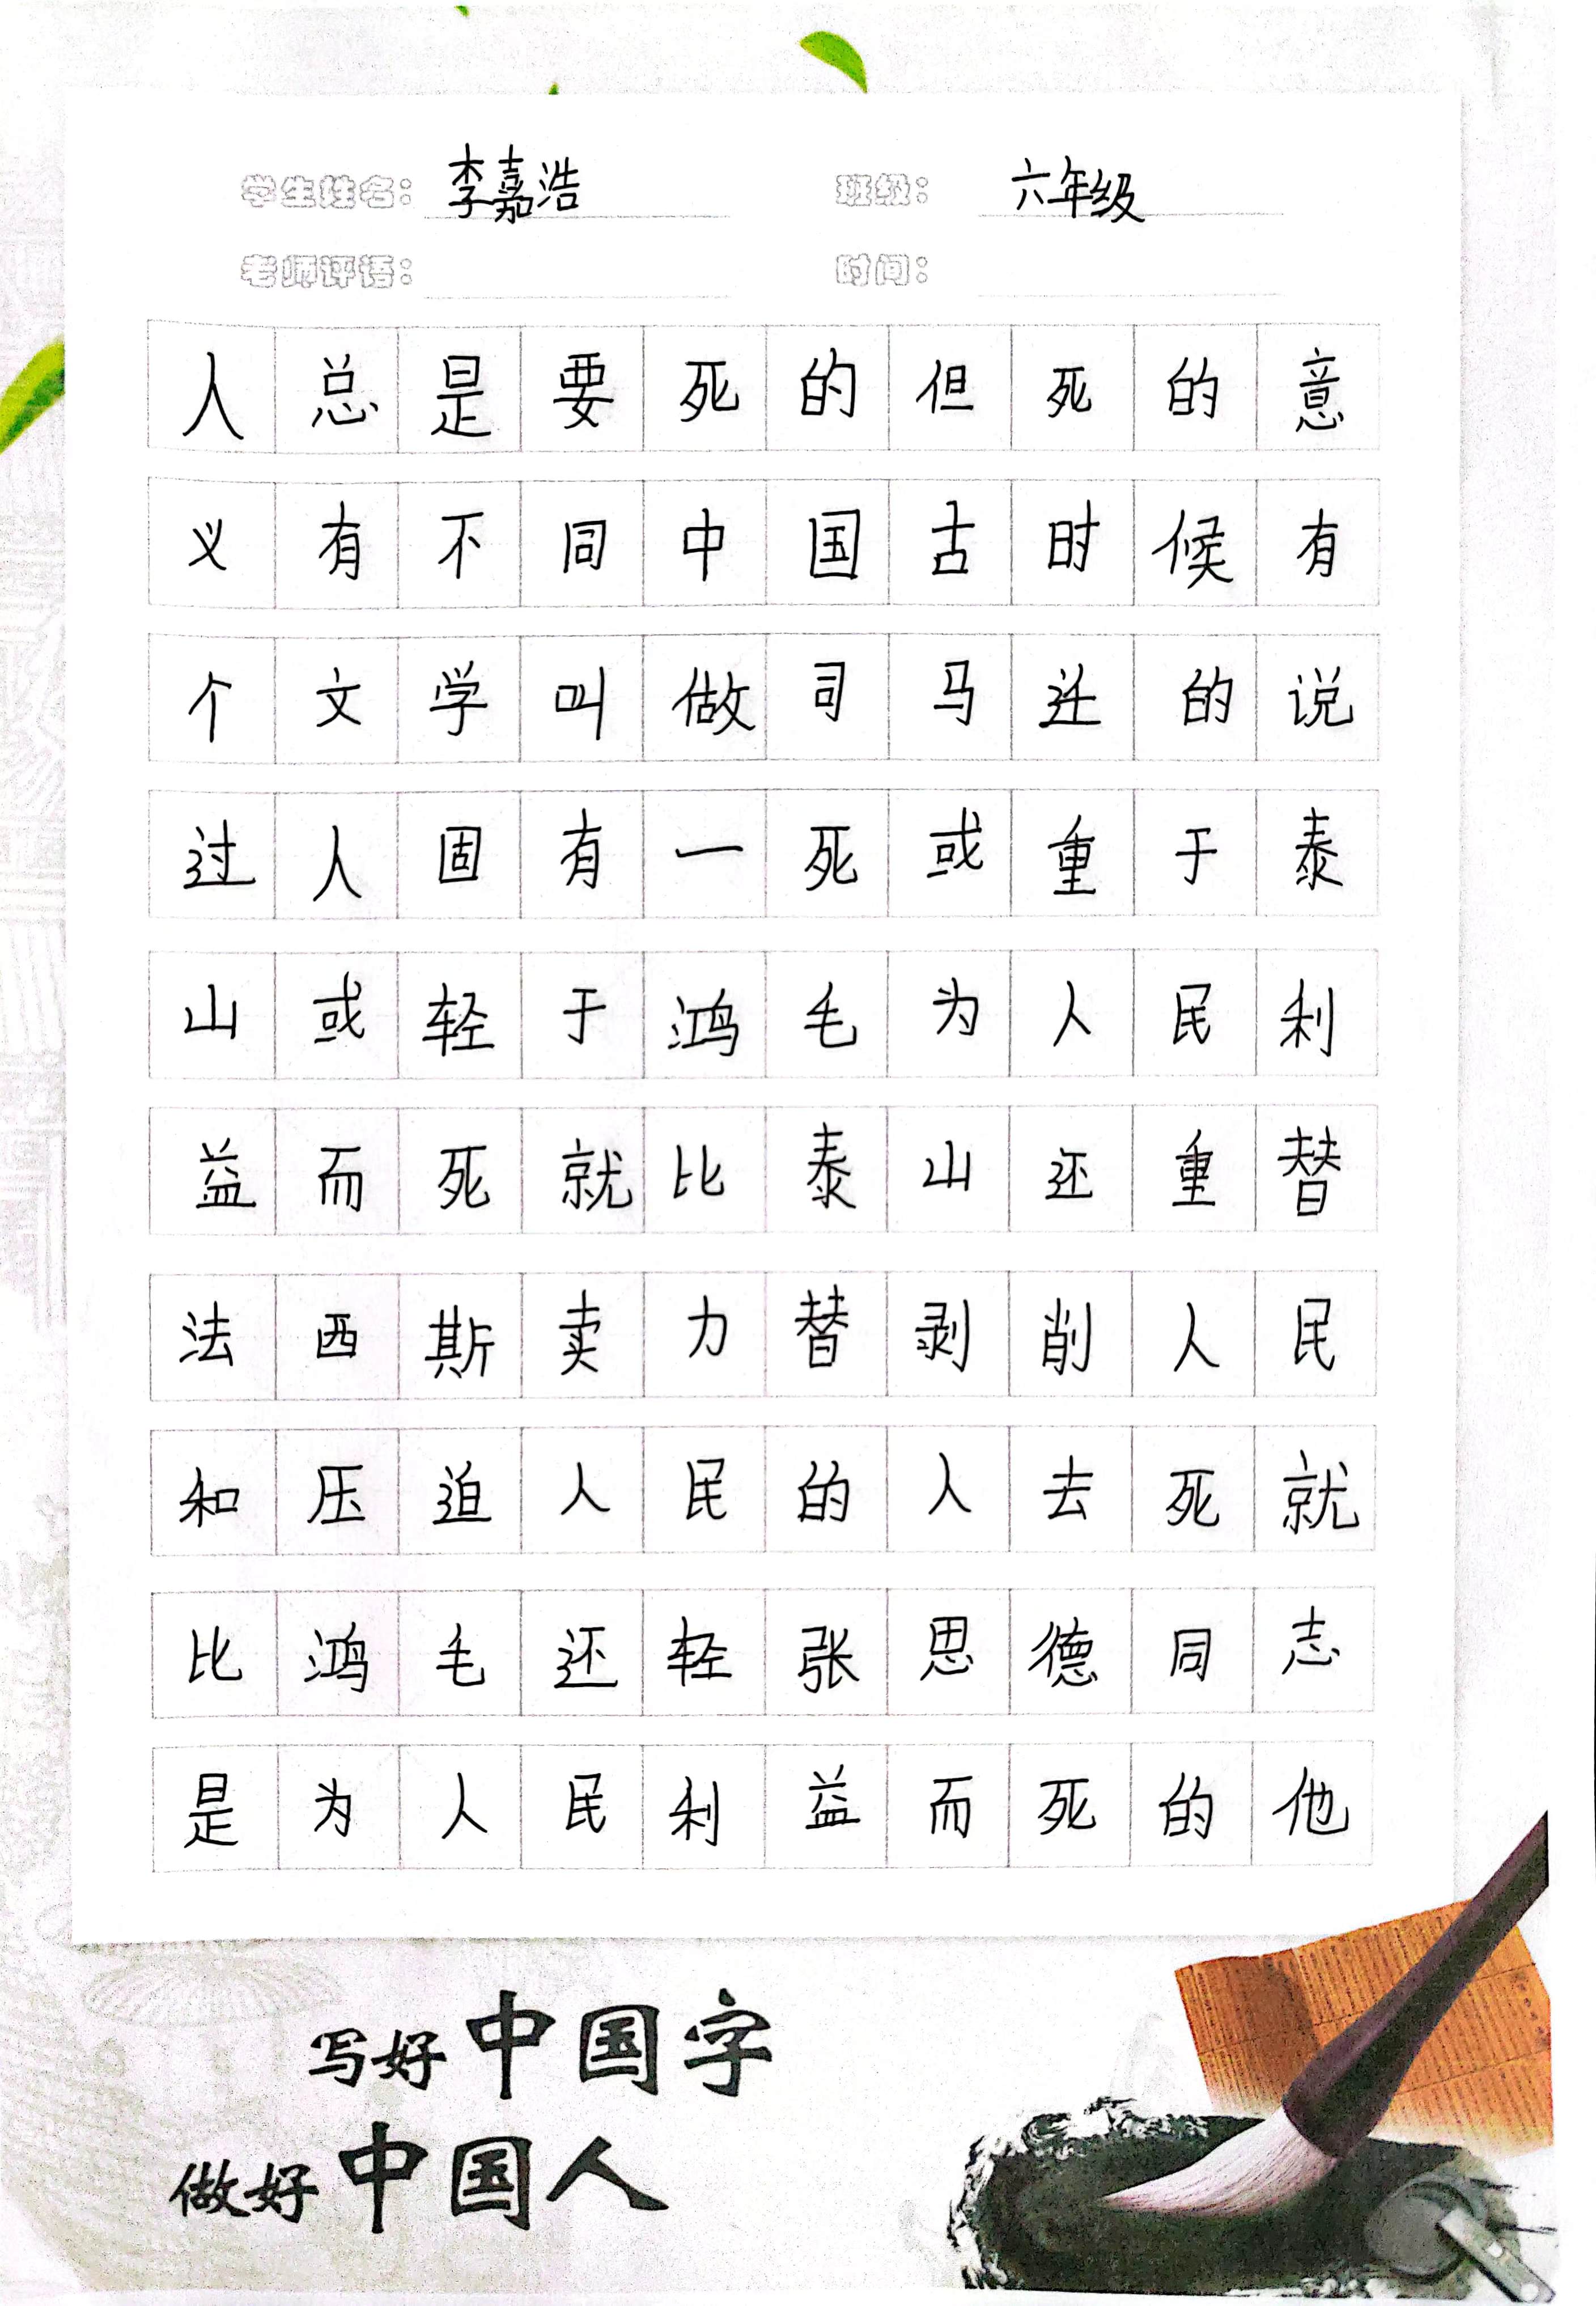 学生姓名：李嘉浩 班级：六年级
老师评语： 时间：
人总是要死的但死的意
义有不同中国古时候有
个文学叫做司马迁的说
过人固有一死或重于泰
山或轻于鸿毛为人民利
益而死就比泰山还重替
法西斯卖力替剥削人民
和压迫人民的人去死就
比鸿毛还轻张思德同志
是为人民利益而死的他
写好中国字
做好中国人